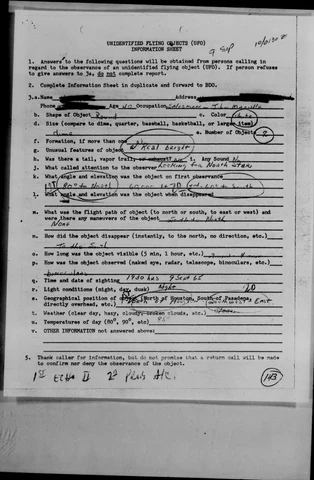 UNIDENTIFIED FLYING OBJECTS (UFO)
INFORMATION SHEET
9 Sep
1. Answers to the following questions will be obtained from persons calling in
regard to the observance of an unidentified flying object (UFO). If person refuses
to give answers to 3a, do not complete report.
2. Complete Information Sheet in duplicate and forward to BDO.
3.a. Name Address
Phone Age 40 Occupation Salesman
b. Shape of Object Round c. Color White
d. Size (compare to dime, quarter, baseball, basketball, or larger item)
dime e. Number of Objects 2
f. Formation, if more than one
g. Unusual features of object Real bright
h. Was there a tail, vapor trail, or exhaust No i. Any Sound No
j. What called attention to object Looking for North Star
k. What angle and elevation was the object on first observance
l. What angle and elevation was the object when disappeared
m. What was the flight path of object (to north or south, to east or west) and
were there any maneuvers of the object. South North
None
n. How did the object disappear (instantly, to the north, no direction, etc.)
To the South
o. How long was the object visible (5 min, 1 hour, etc.)
p. How was the object observed (naked eye, radar, telescope, binoculars, etc.)
q. Time and date of sighting 1920 hrs 9 Sept 65
r. Light conditions (night, day, dusk) Night
s. Geographical position of object (North of Houston, South of Pasadena,
directly overhead, etc.)
t. Weather (clear day, hazy, cloudy, broken clouds, etc.) Clear
u. Temperatures of day (80°, 90°, etc) 95
v. OTHER INFORMATION not answered above:
5. Thank caller for information, but do not promise that a return call will be made
to confirm nor deny the observance of the object.
1st Echo II 2d A/C
143